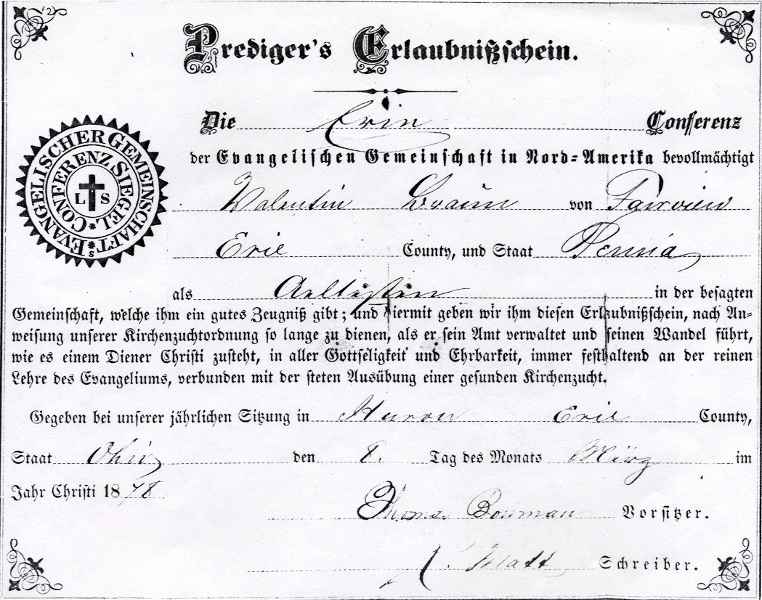 Prediger's Erlaubnißschein.
Die Erie Conferenz
der Evangelischen Gemeinschaft in Nord-Amerika bevollmächtigt
Valentin Braun von Fairview
Erie County, und Staat Penna
als Aeltesten in der besagten
Gemeinschaft, welche ihm ein gutes Zeugniß gibt; und hiermit geben wir ihm diesen Erlaubnißschein, nach An-
weisung unserer Kirchenzuchtordnung so lange zu dienen, als er sein Amt verwaltet und seinen Wandel führt,
wie es einem Diener Christi zusteht, in aller Gottseligkeit und Ehrbarkeit, immer festhaltend an der reinen
Lehre des Evangeliums, verbunden mit der steten Ausübung einer gesunden Kirchenzucht.
Gegeben bei unserer jährlichen Sitzung in Huron Erie County,
Staat Ohio den 8. Tag des Monats März im
Jahr Christi 1878
Thomas Bowman Vorsitzer.
Matt Schreiber.
EVANGELISCHER GEMEINSCHAFTS
CONFERENZ SIEGEL
L S